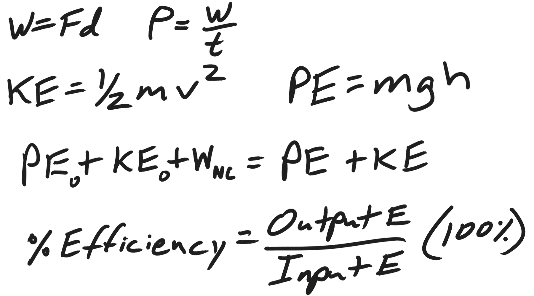 W=Fd P=W/t
KE=1/2mv² PE=mgh
PE₀+KE₀+W_NC=PE+KE
% Efficiency=Output E/Input E (100%)